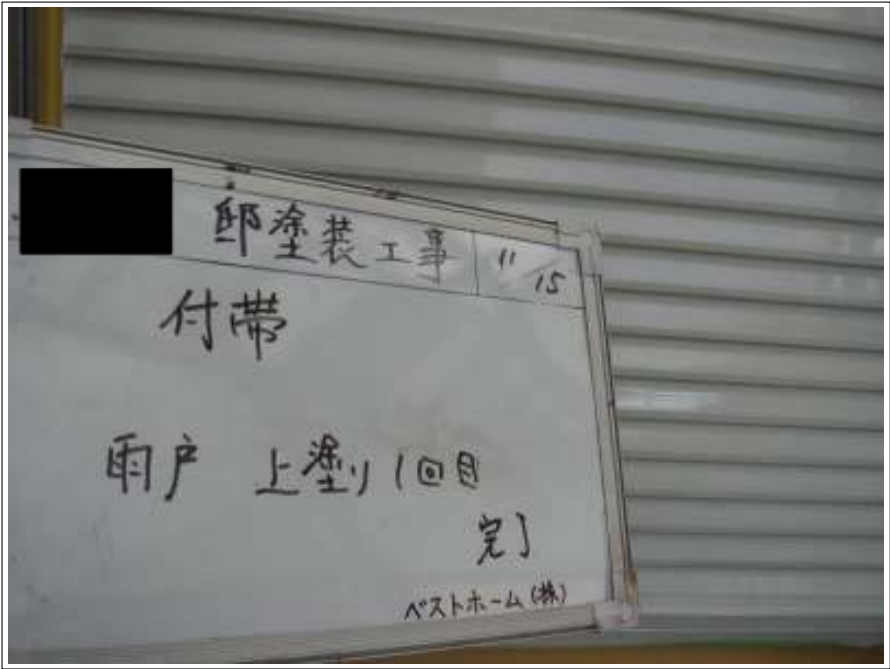 邸塗装工事 11/15
付帯
雨戸 上塗り1回目
完了
ベストホーム(株)